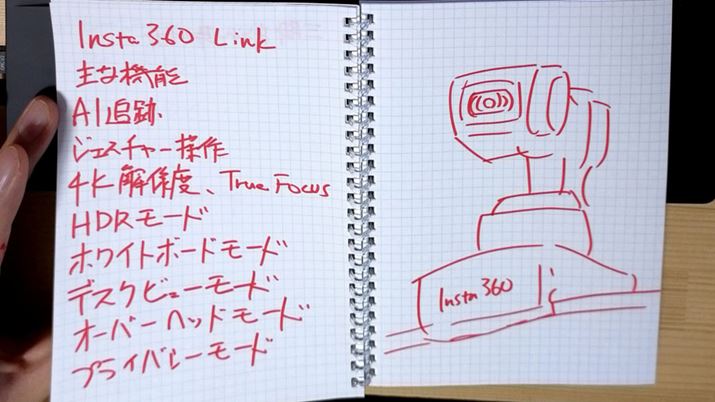 Insta360 Link
主な機能
AI追跡
ジェスチャー操作
4K解像度、True Focus
HDRモード
ホワイトボードモード
デスクビューモード
オーバーヘッドモード
プライバシーモード
Insta360